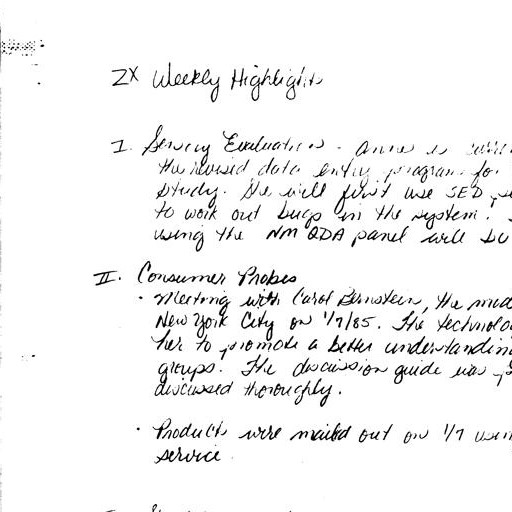 ZX Weekly Highlights
I. Sensory Evaluation - Anne is
the revised data entry program for
study. She will first use SED
to work out bugs in the system.
using the NM QDA panel will
II. Consumer Probes
· Meeting with Carol Bernstein, the
New York City on 1/7/85. The
her to promote a better understanding
groups. The discussion guide was
discussed thoroughly.
· Products were mailed out on 1/7
service.